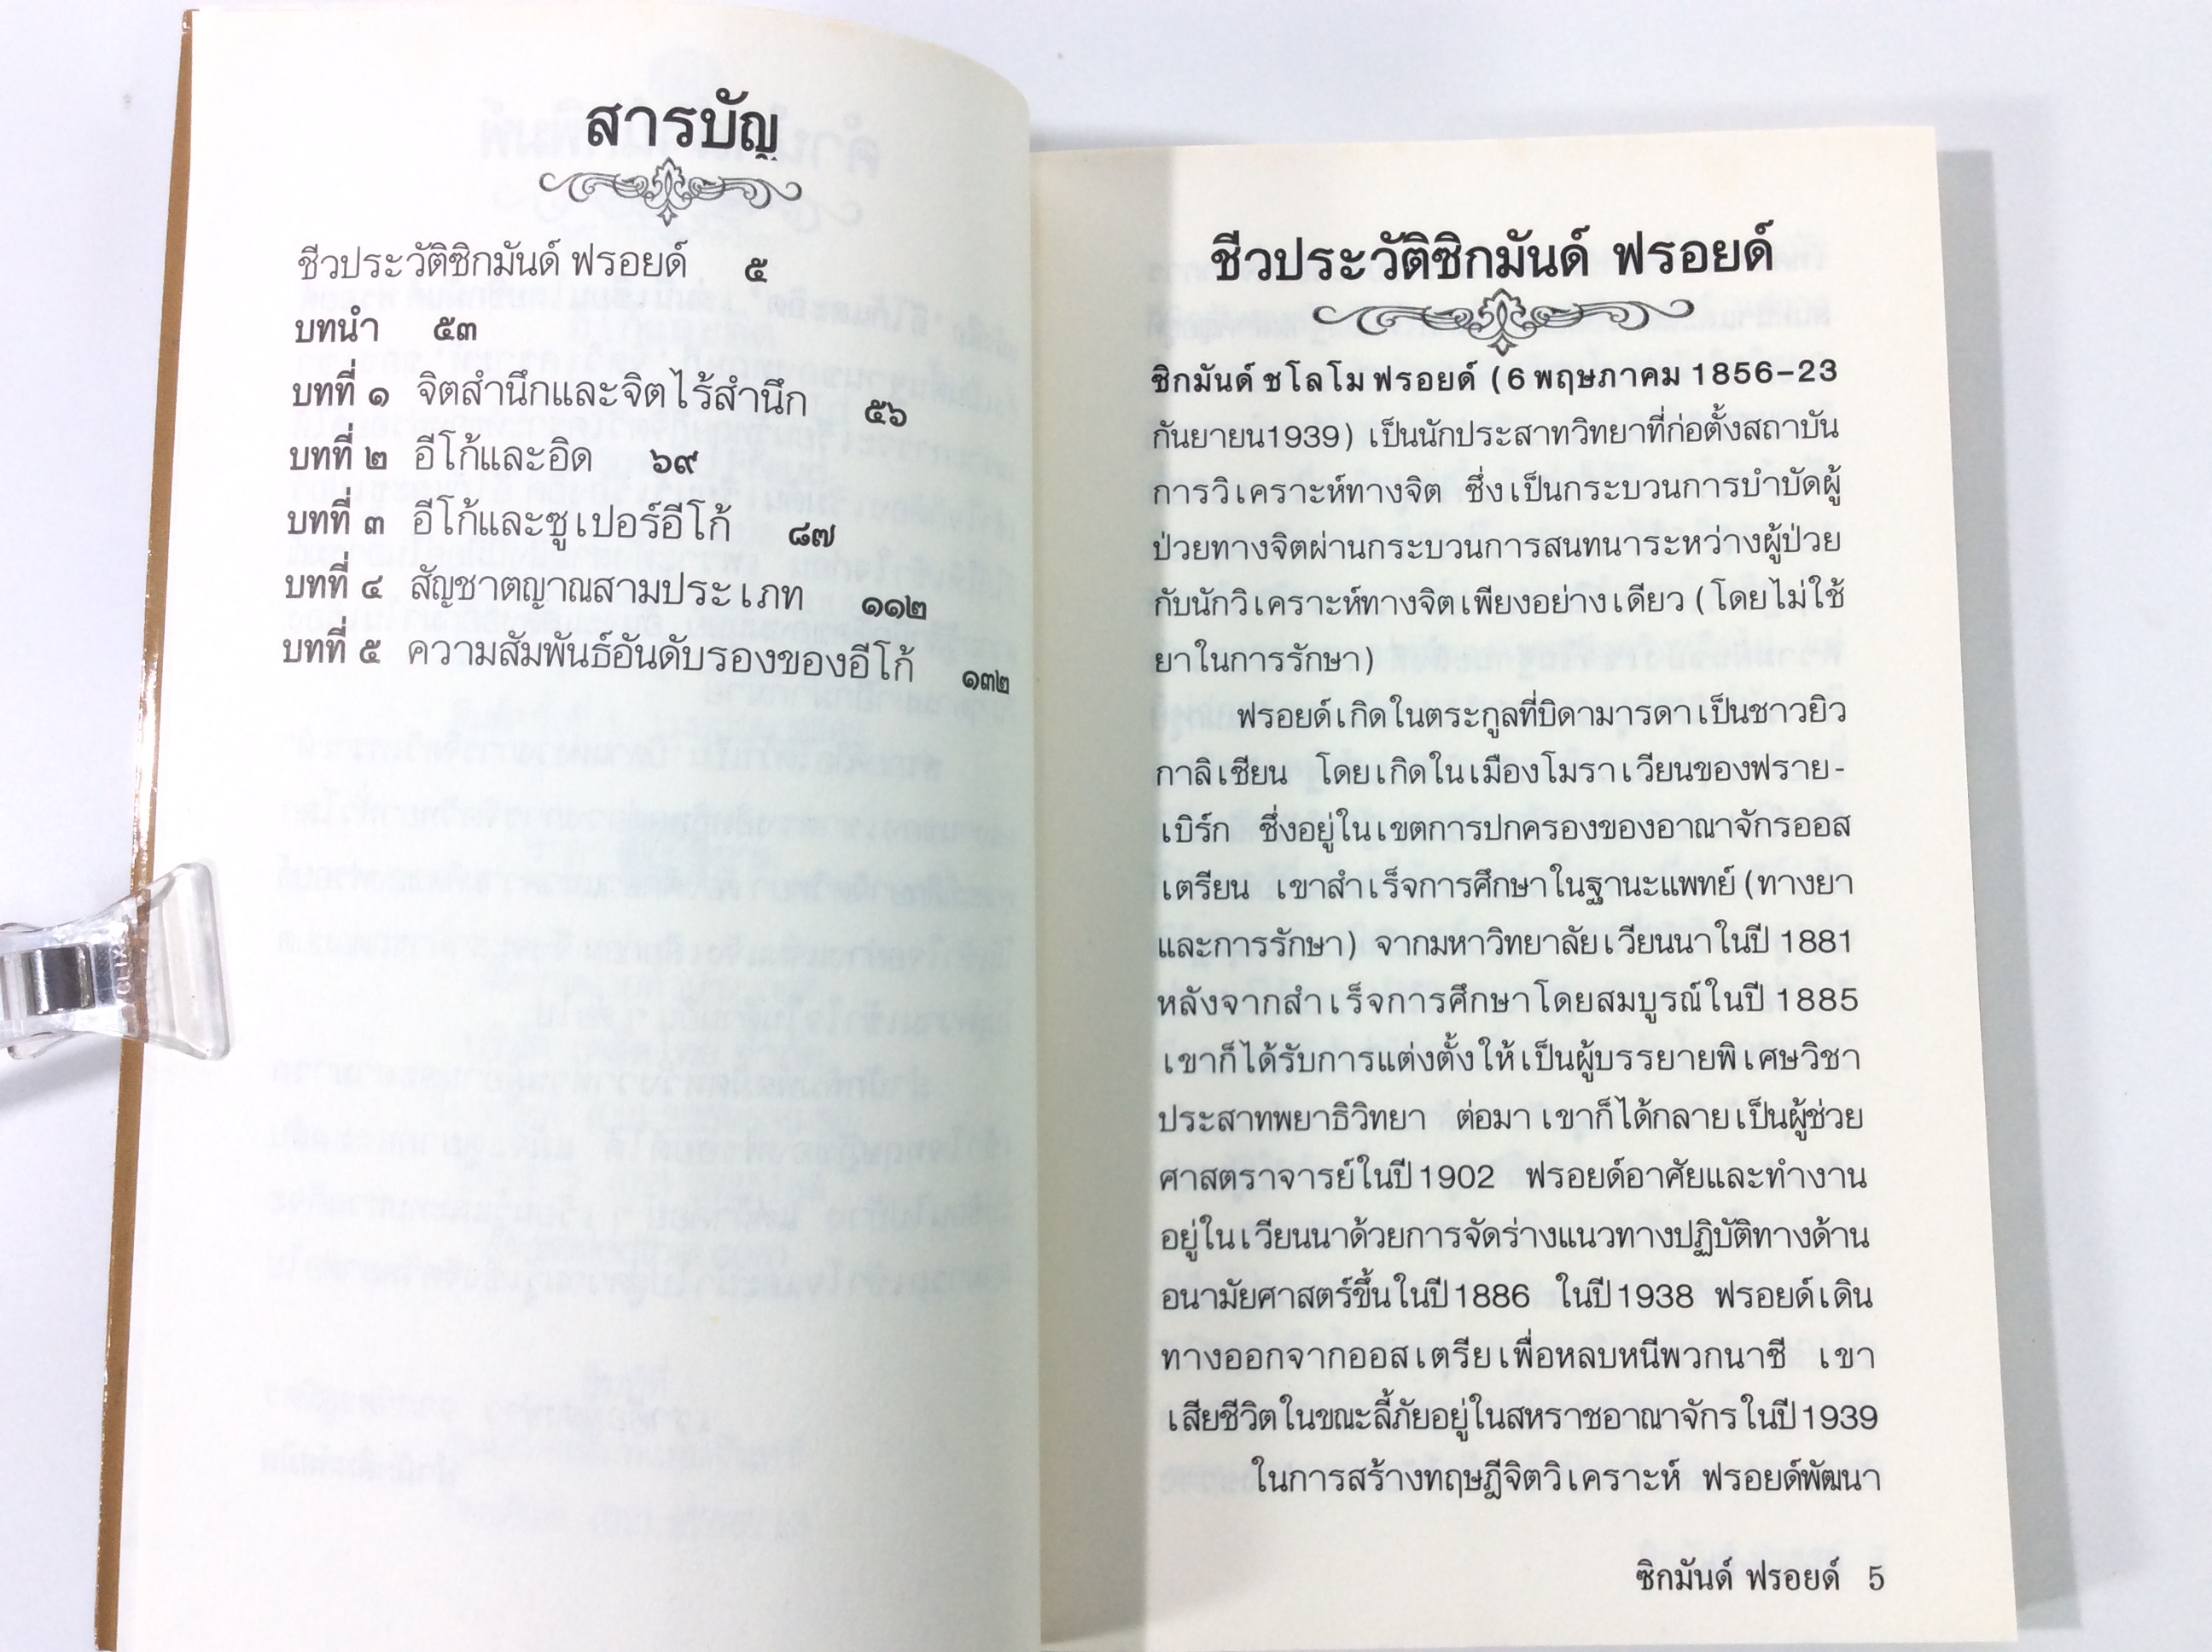 สารบัญ
ชีวประวัติซิกมันด์ ฟรอยด์ ๕
บทนำ ๕๓
บทที่ ๑ จิตสำนึกและจิตไร้สำนึก ๕๖
บทที่ ๒ อีโก้และอิด ๖๙
บทที่ ๓ อีโก้และซูเปอร์อีโก้ ๘๗
บทที่ ๔ สัญชาตญาณสามประเภท ๑๑๒
บทที่ ๕ ความสัมพันธ์อันดับรองของอีโก้ ๑๓๒
ชีวประวัติซิกมันด์ ฟรอยด์
ซิกมันด์ ชโลโม ฟรอยด์ (6 พฤษภาคม 1856-23
กันยายน1939) เป็นนักประสาทวิทยาที่ก่อตั้งสถาบัน
การวิเคราะห์ทางจิต ซึ่งเป็นกระบวนการบำบัดผู้
ป่วยทางจิตผ่านกระบวนการสนทนาระหว่างผู้ป่วย
กับนักวิเคราะห์ทางจิตเพียงอย่างเดียว (โดยไม่ใช้
ยาในการรักษา)
ฟรอยด์เกิดในตระกูลที่บิดามารดาเป็นชาวยิว
กาลิเซียน โดยเกิดในเมืองโมราเวียนของฟราย-
เบิร์ก ซึ่งอยู่ในเขตการปกครองของอาณาจักรออส
เตรียน เขาสำเร็จการศึกษาในฐานะแพทย์ (ทางยา
และการรักษา) จากมหาวิทยาลัยเวียนนาในปี 1881
หลังจากสำเร็จการศึกษาโดยสมบูรณ์ในปี 1885
เขาก็ได้รับการแต่งตั้งให้เป็นผู้บรรยายพิเศษวิชา
ประสาทพยาธิวิทยา ต่อมาเขาก็ได้กลายเป็นผู้ช่วย
ศาสตราจารย์ในปี 1902 ฟรอยด์อาศัยและทำงาน
อยู่ในเวียนนาด้วยการจัดร่างแนวทางปฏิบัติทางด้าน
อนามัยศาสตร์ขึ้นในปี 1886 ในปี 1938 ฟรอยด์เดิน
ทางออกจากออสเตรียเพื่อหลบหนีพวกนาซี เขา
เสียชีวิตในขณะลี้ภัยอยู่ในสหราชอาณาจักรในปี 1939
ในการสร้างทฤษฎีจิตวิเคราะห์ ฟรอยด์พัฒนา
ซิกมันด์ ฟรอยด์ 5